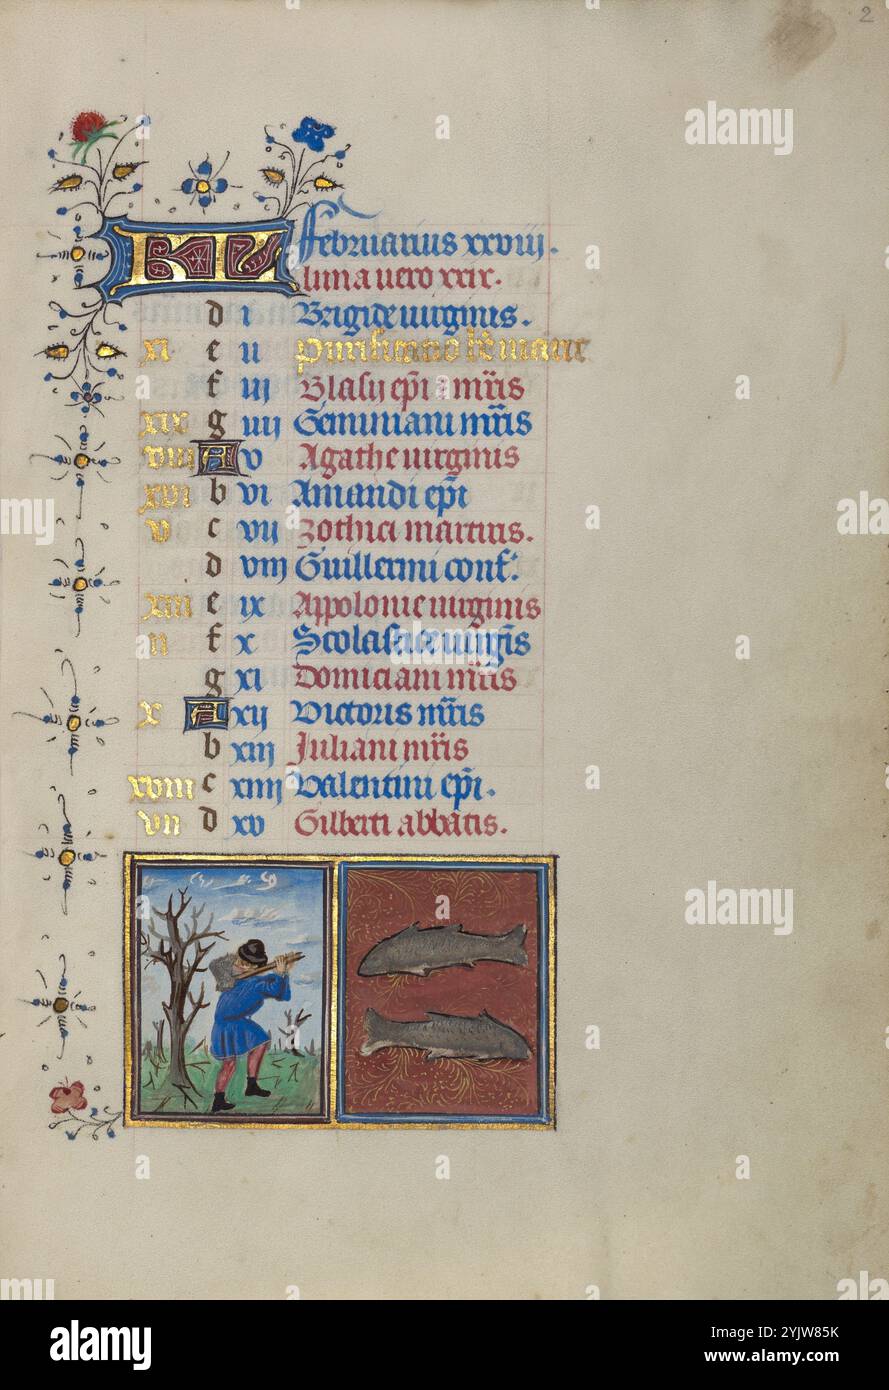 2
KL februarius xxviij.
luna vero xxix.
d i Brigide virginis.
xi e ii Purificatio be marie
f iij Blasij epi & mris
xix g iiij Geminiani mris
viii A v Agathe virginis
xvi b vi Amandi epi
v c vij Zothici martiris.
d viij Guillermi conf.
xiii e ix Appolonie virginis
ii f x Scolastice virgis
g xi Domiciani mris
x A xij Victoris mris
b xiij Juliani mris
xviii c xiiij Valentini epi.
vii d xv Gilberti abbatis.
a alamy
alamy
Image ID: 2YJW85K
www.alamy.com